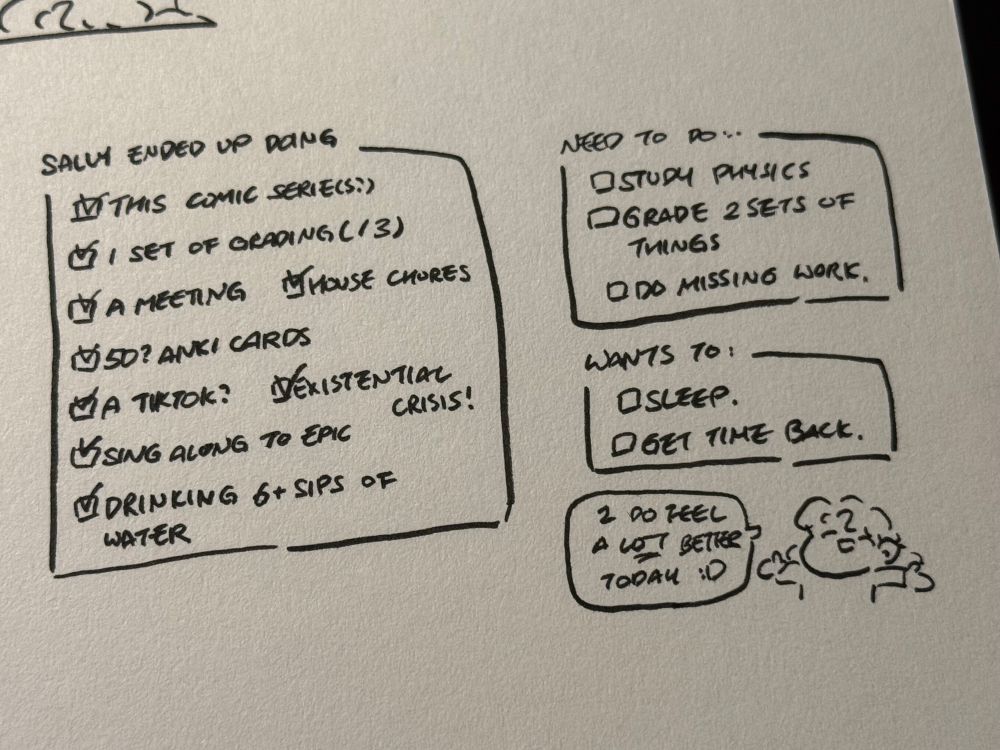 SALLY ENDED UP DOING
THIS COMIC SERIE(S?)
1 SET OF GRADING (/3)
A MEETING HOUSE CHORES
50? ANKI CARDS
A TIKTOK? EXISTENTIAL
CRISIS!
SING ALONG TO EPIC
DRINKING 6+ SIPS OF
WATER
NEED TO DO...
STUDY PHYSICS
GRADE 2 SETS OF
THINGS
DO MISSING WORK.
WANTS TO:
SLEEP.
GET TIME BACK.
I DO FEEL
A LOT BETTER
TODAY :D